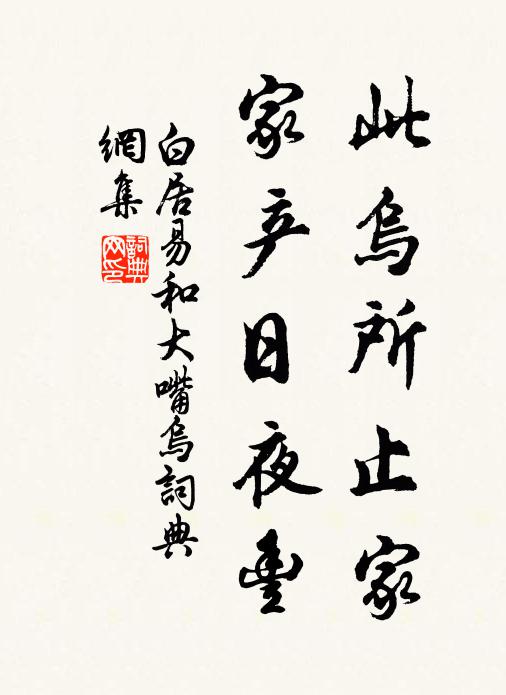 此烏所止家
家产日夜豊
白居易和大嘴烏詞典
網集
詞典网印